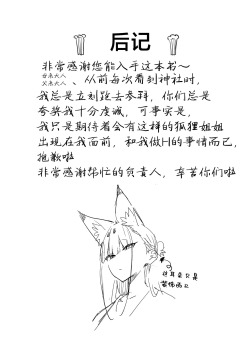 后记
非常感谢您能入手这本书~
、从前每次看到神社时，
我总是立刻跑去参拜，你们总是
夸奖我十分虔诚，可事实是，
我只是期待着会有这样的狐狸姐姐
出现在我面前，和我做H的事情而已，
抱歉啦
非常感谢帮忙的负责人，辛苦你们啦
这耳朵只是
装饰而已